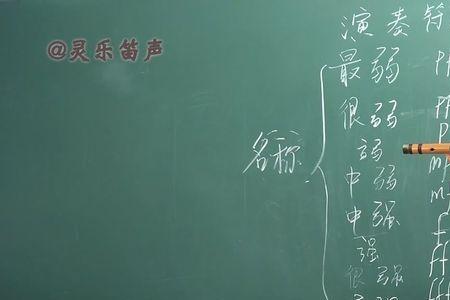 @灵乐笛声
演奏符
最弱 pp
很弱 pp
弱 p
名称
中弱 m
中强 m
强 f
很强 ff